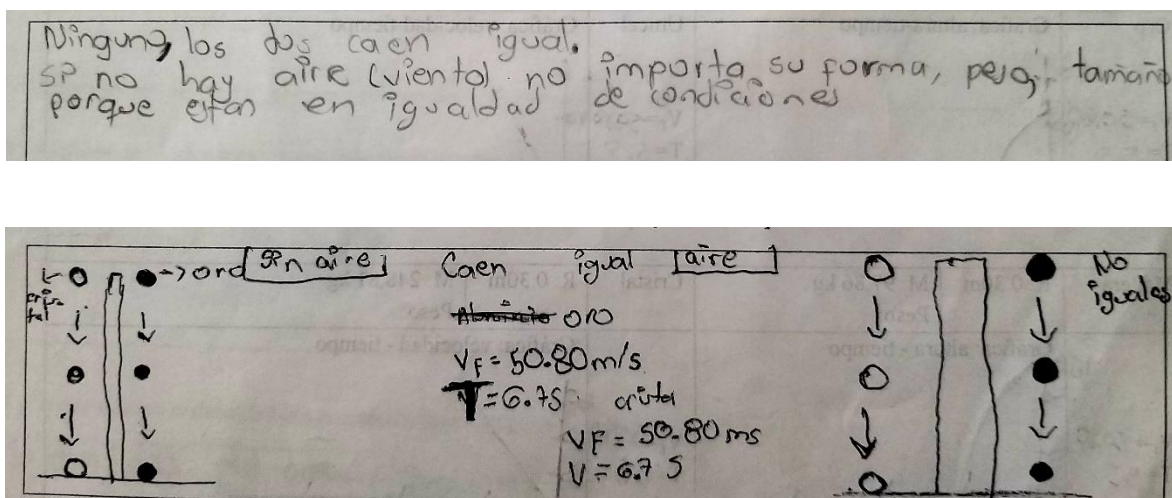 Ninguno, los dos caen igual.
si no hay aire (viento) no importa su forma, peso, tamaño
porque estan en igualdad de condiciones
oro
Sin aire
Caen igual
aire
No
iguales
oro
VF = 50.80 m/s
T = 6.7S
VF = 50.80 ms
V = 6.7 S